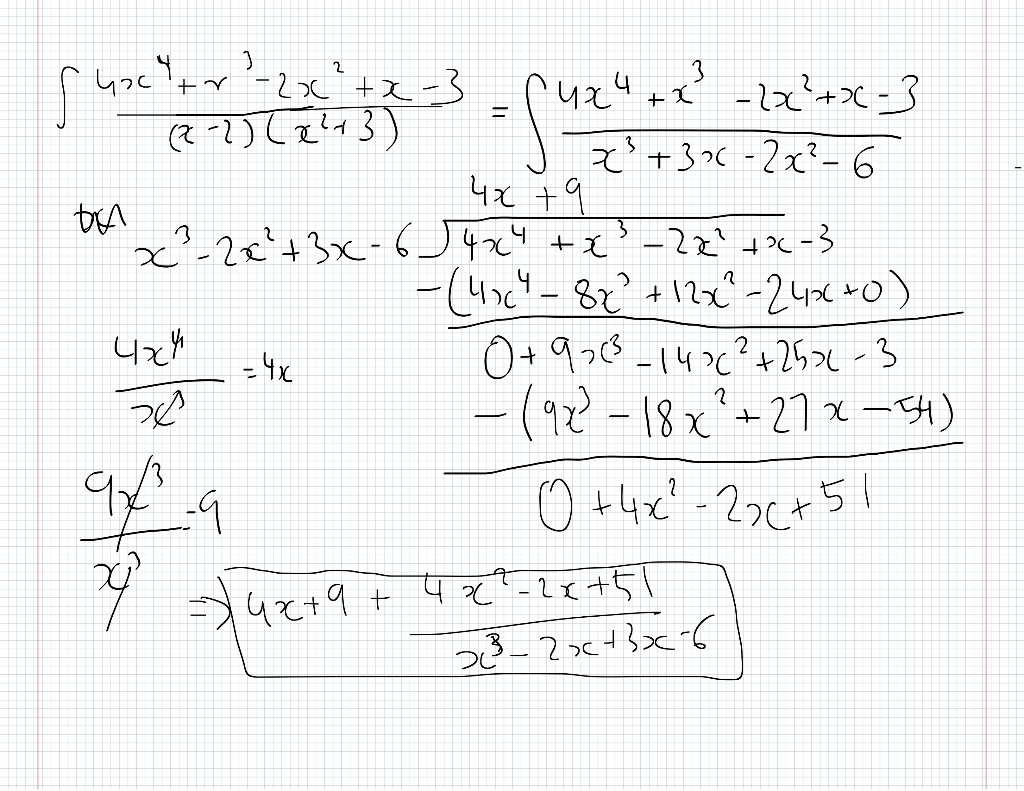 ∫ (4x⁴ + x³ - 2x² + x - 3) / ((x-2)(x²+3)) = ∫ (4x⁴ + x³ - 2x² + x - 3) / (x³ + 3x - 2x² - 6)
4x + 9
x³ - 2x² + 3x - 6 ) 4x⁴ + x³ - 2x² + x - 3
-(4x⁴ - 8x³ + 12x² - 24x + 0)
4x⁴ / x³ = 4x
0 + 9x³ - 14x² + 25x - 3
-(9x³ - 18x² + 27x - 54)
9x³ / x³ = 9
0 + 4x² - 2x + 51
⇒ 4x + 9 + (4x² - 2x + 51) / (x³ - 2x + 3x - 6)